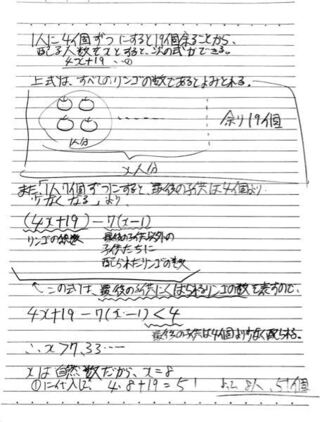 1人に4個ずつにすると19個余ることから、
配る人数をxとすると、次の式ができる。
4x+19 …①
上式は、すべてのリンゴの数であるとよみとれる。
余り19個
1人分
x人分
また「1人7個ずつにすると、最後の子供は4個より
少なくなる」より、
(4x+19)-7(x-1)
リンゴの総数
最後の子供以外の
子供たちに
配られたリンゴの数
↑この式は、最後の子供にくばられるリンゴの数を表すので、
4x+19-7(x-1)<4
最後の子供は4個より少なく配られる。
∴x>7.33……
xは自然数だから、x=8
①に代入して、4・8+19=51
よって8人、51個